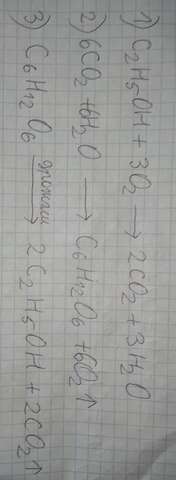 1) C₂H₅OH + 3O₂ → 2CO₂ + 3H₂O
2) 6CO₂ + 6H₂O → C₆H₁₂O₆ + 6O₂↑
3) C₆H₁₂O₆ дрожжи→ 2C₂H₅OH + 2CO₂↑